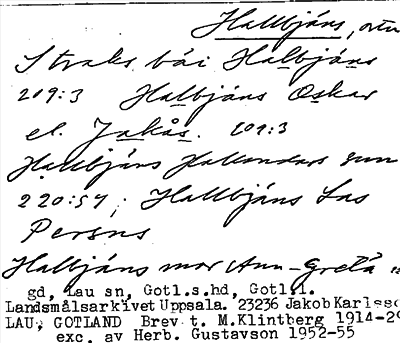 Hallbjäns, 
Straks bäi Halbjäns
209:3 Halbjäns Oskar
el. Jakås. 209:3
Hallbjäns Hallendars sun
220:57; Hallbjäns Las
Persns
Hallbjäns mor Ann-Greta
gd, Lau sn, Gotl.s.hd, Gotl.l.
Landsmålsarkivet Uppsala. 23236 Jakob Karlsso
LAU, GOTLAND Brev t. M.Klintberg 1914-29
exc. av Herb. Gustavson 1952-55